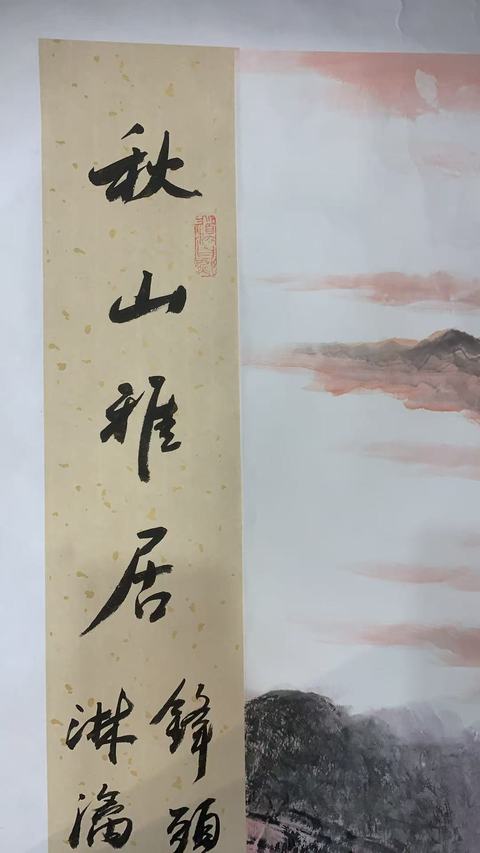 秋山雅居
鋒頭
淋漓